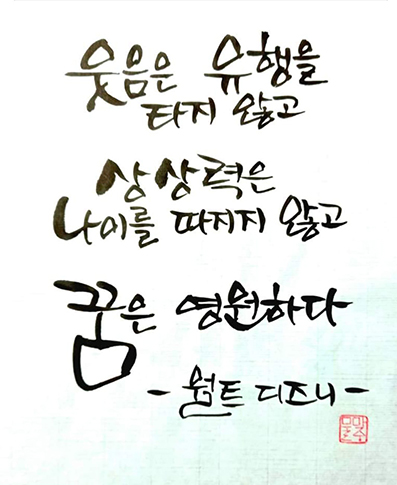 웃음은 유행을
타지 않고
상상력은
나이를 따지지 않고
꿈은 영원하다
- 월트 디즈니 -